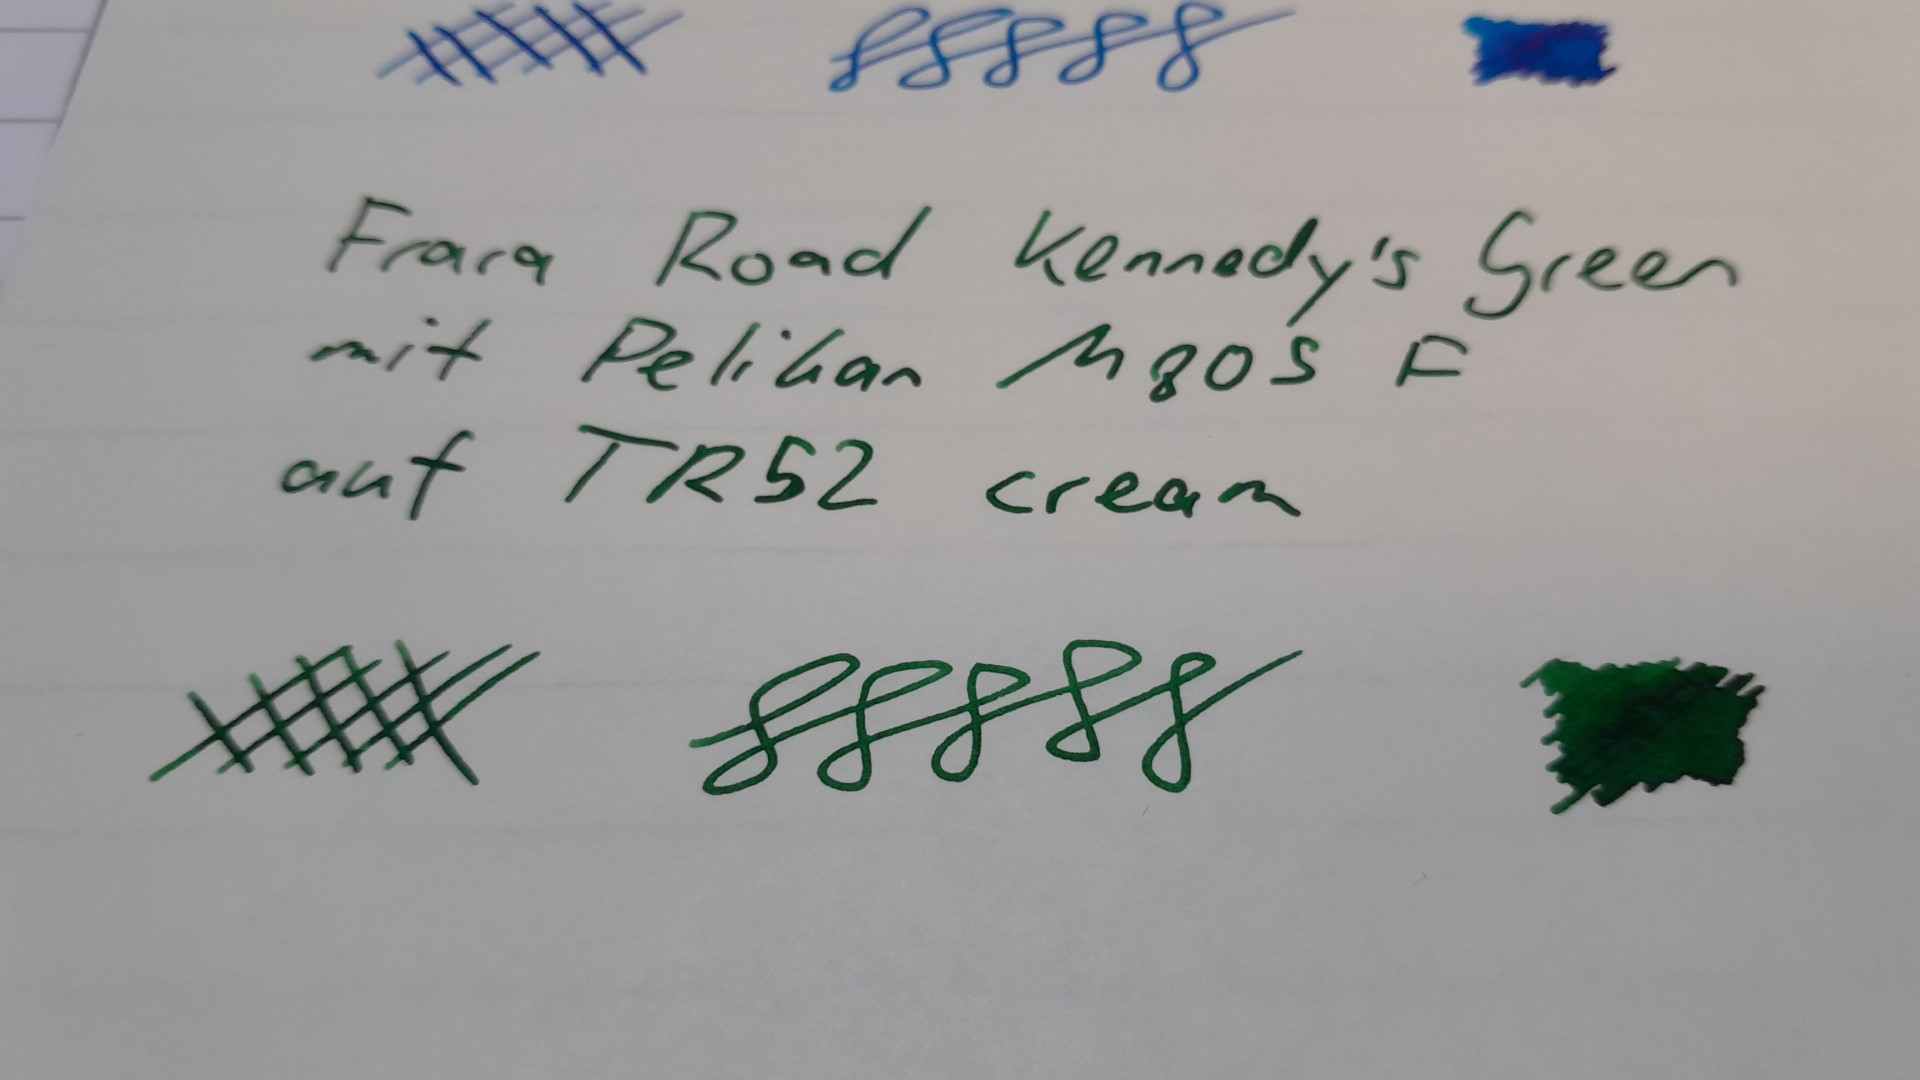 Frara Road Kennedy's Green
mit Pelikan M805 F
auf TR52 cream